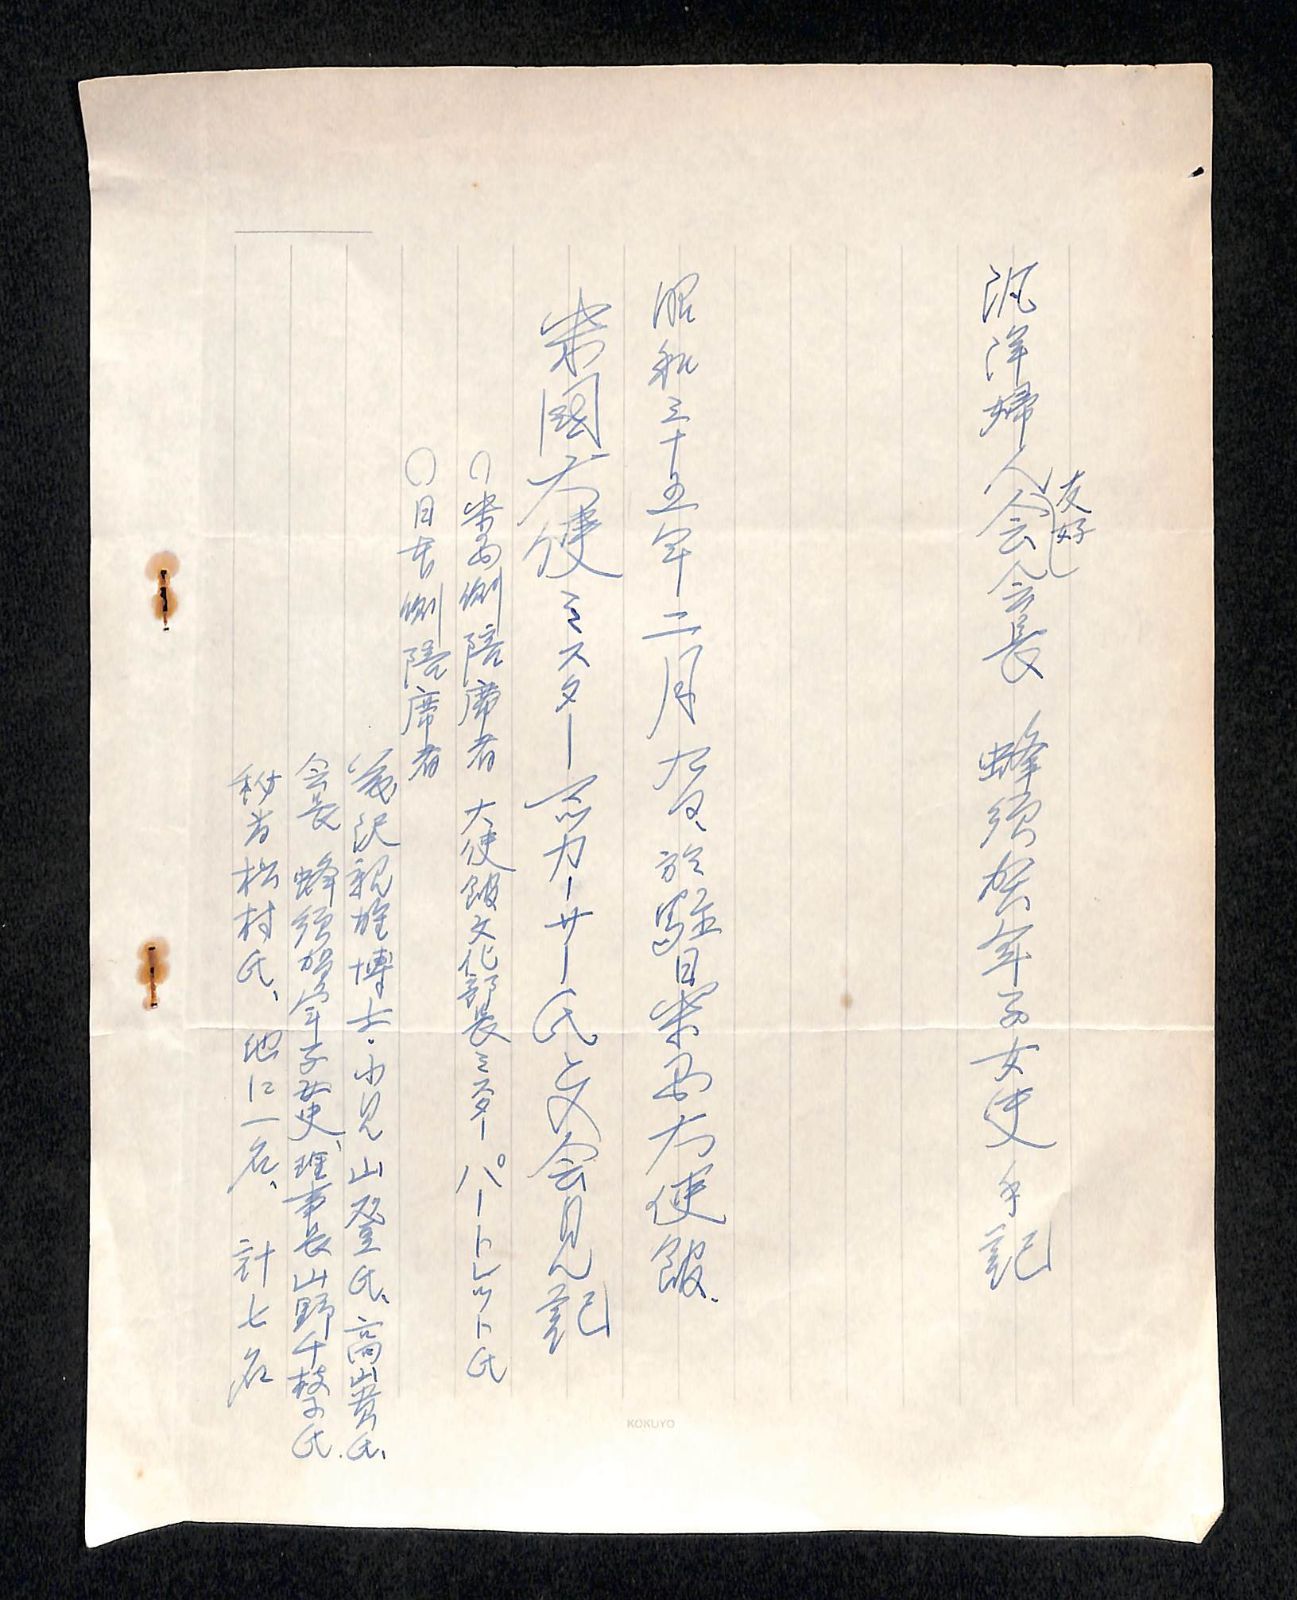 汎洋婦人会会長 蜂須賀年子女史手記
友好
昭和三十五年二月九日、於駐日米国大使館、
米國大使ミスターマッカーサー氏との会見記
〇米国側陪席者 大使館文化部長ミスター パートレット氏
〇日本側陪席者
沢親雄博士・小見山登氏、高山貴氏、
会長 蜂須賀年子女史、理事長山野千枝子氏、
秘書松村氏、他に一名、 計七名
KOKUYO